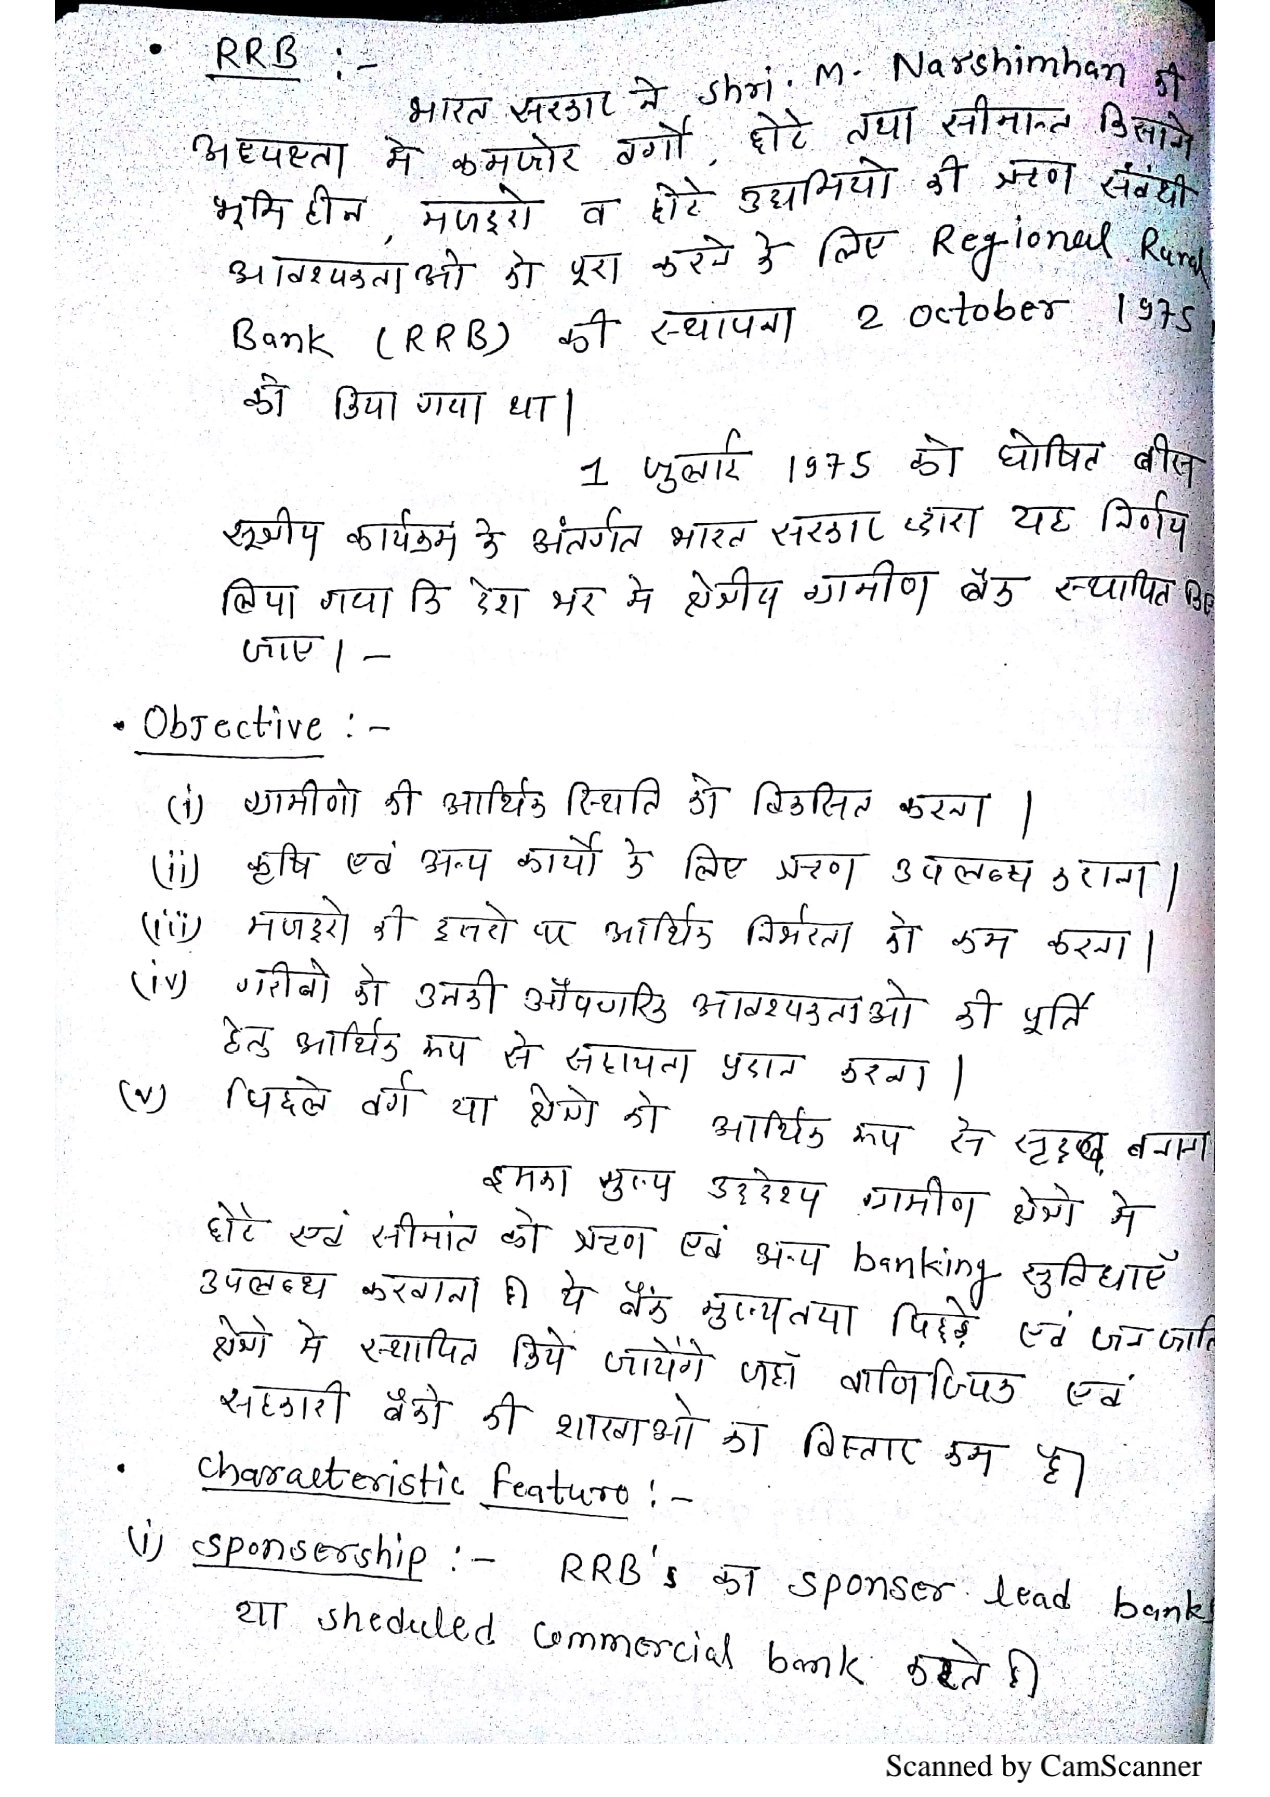 • RRB :-
भारत सरकार ने Shri. M. Narshimhan की
अध्यक्षता मे कमजोर वर्गों, छोटे तथा सीमान्त किसानो
भूमिहीन, मजदुरो व छोटे उद्यमियो की ऋण संबंधी
आवश्यकताओ को पूरा करने के लिए Regional Rural
Bank (RRB) की स्थापना 2 October 1975,
को किया गया था।
1 जुलाई 1975 को घोषित बीस
सूत्रीय कार्यक्रम के अंतर्गत भारत सरकार द्वारा यह निर्णय
लिया गया कि देश भर मे क्षेत्रीय ग्रामीण बैंक स्थापित किए
जाए। -
• Objective :-
(i) ग्रामीणो की आर्थिक स्थिति को विकसित करना।
(ii) कृषि एवं अन्य कार्यो के लिए ऋण उपलब्ध कराना।
(iii) मजदुरो की दुसरो पर आर्थिक निर्भरता को कम करना।
(iv) गरीबो को उनकी औपचारिक आवश्यकताओ की पूर्ति
हेतु आर्थिक रूप से सहायता प्रदान करना।
(v) पिछले वर्ग या क्षेत्रो को आर्थिक रूप से सुदृढ बनाना
इसका मुख्य उद्देश्य ग्रामीण क्षेत्रो मे
छोटे एवं सीमांत को ऋण एवं अन्य banking सुविधाएँ
उपलब्ध करवाना है। ये बैंक मुख्यतया पिछड़े एवं जनजाति
क्षेत्रो मे स्थापित किये जायेंगे जहाँ वाणिज्यिक एवं
सहकारी बैंको की शाखाओ का विस्तार कम है।
• Characteristic Feature :-
(i) Sponsership :- RRB's का sponser lead bank
या sheduled commercial bank करते है।
Scanned by CamScanner